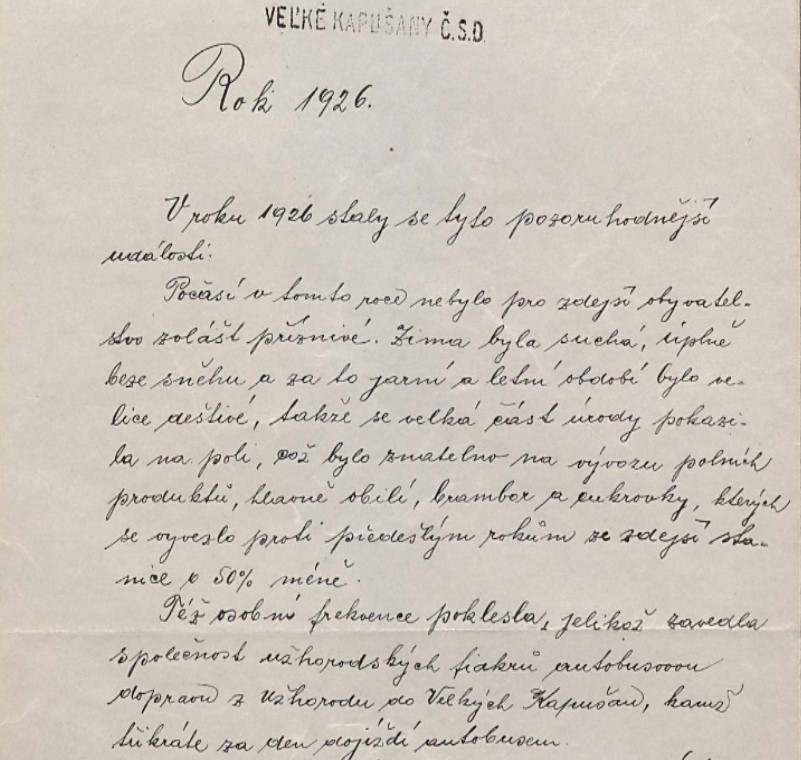 VEĽKÉ KAPUŠANY Č.S.D.
Rok 1926.
V roku 1926 staly se tyto pozoruhodnější
události:
Počasí v tomto roce nebylo pro zdejší obyvatel-
stvo zvlášt příznivé. Zima byla suchá, úplně
beze sněhu a za to jarní a letní období bylo ve-
lice deštivé, takže se velká část úrody pokazi-
la na poli, což bylo znatelno na vývozu polních
produktů, hlavně obilí, brambor a cukrovky, kterých
se vyvezlo proti předešlým rokům ze zdejší sta-
nice o 50% méně.
Též osobní frekvence poklesla, jelikož zavedla
společnost užhorodských fiakrů autobusovou
dopravu z Užhorodu do Velkých Kapušan, kamž
třikráte za den dojíždí autobusem.